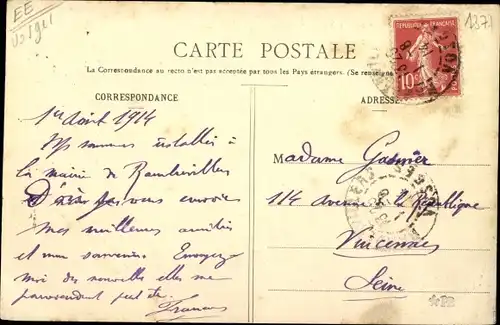 EE
Vosges
1371
CARTE POSTALE
REPUBLIQUE FRANÇAISE
10c
La Correspondance au recto n'est pas acceptée par tous les Pays étrangers. (Se renseigner
CORRESPONDANCE
ADRESSE
1er Août 1914
Nous sommes installés à
la mairie de Rambervillers
vous envoie
mes meilleures amitiés
et mon souvenir. Envoyez
moi des nouvelles elles me
parviendront peut être
Francis
Madame Garnier
114 avenue de la République
Vincennes
Seine